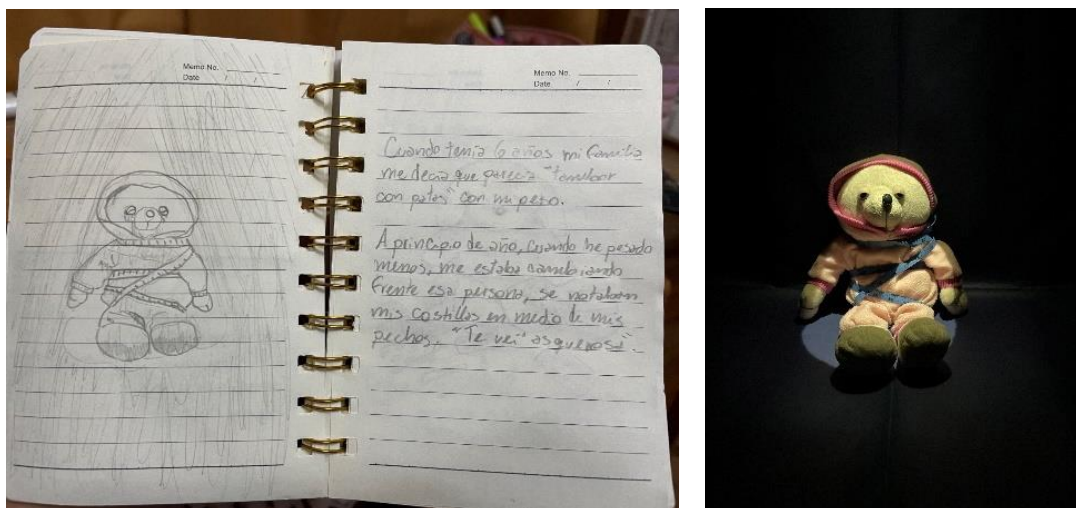 Memo No.
Date / /
Memo No.
Date / /
Cuando tenía 6 años mi familia
me decía que parecía "tambor
con patas" con mi peso.
A principio de año, cuando he pesado
menos, me estaba cambiando
frente esa persona, se notaban
mis costillas en medio de mis
pechos, "Te vei' asquerosa".